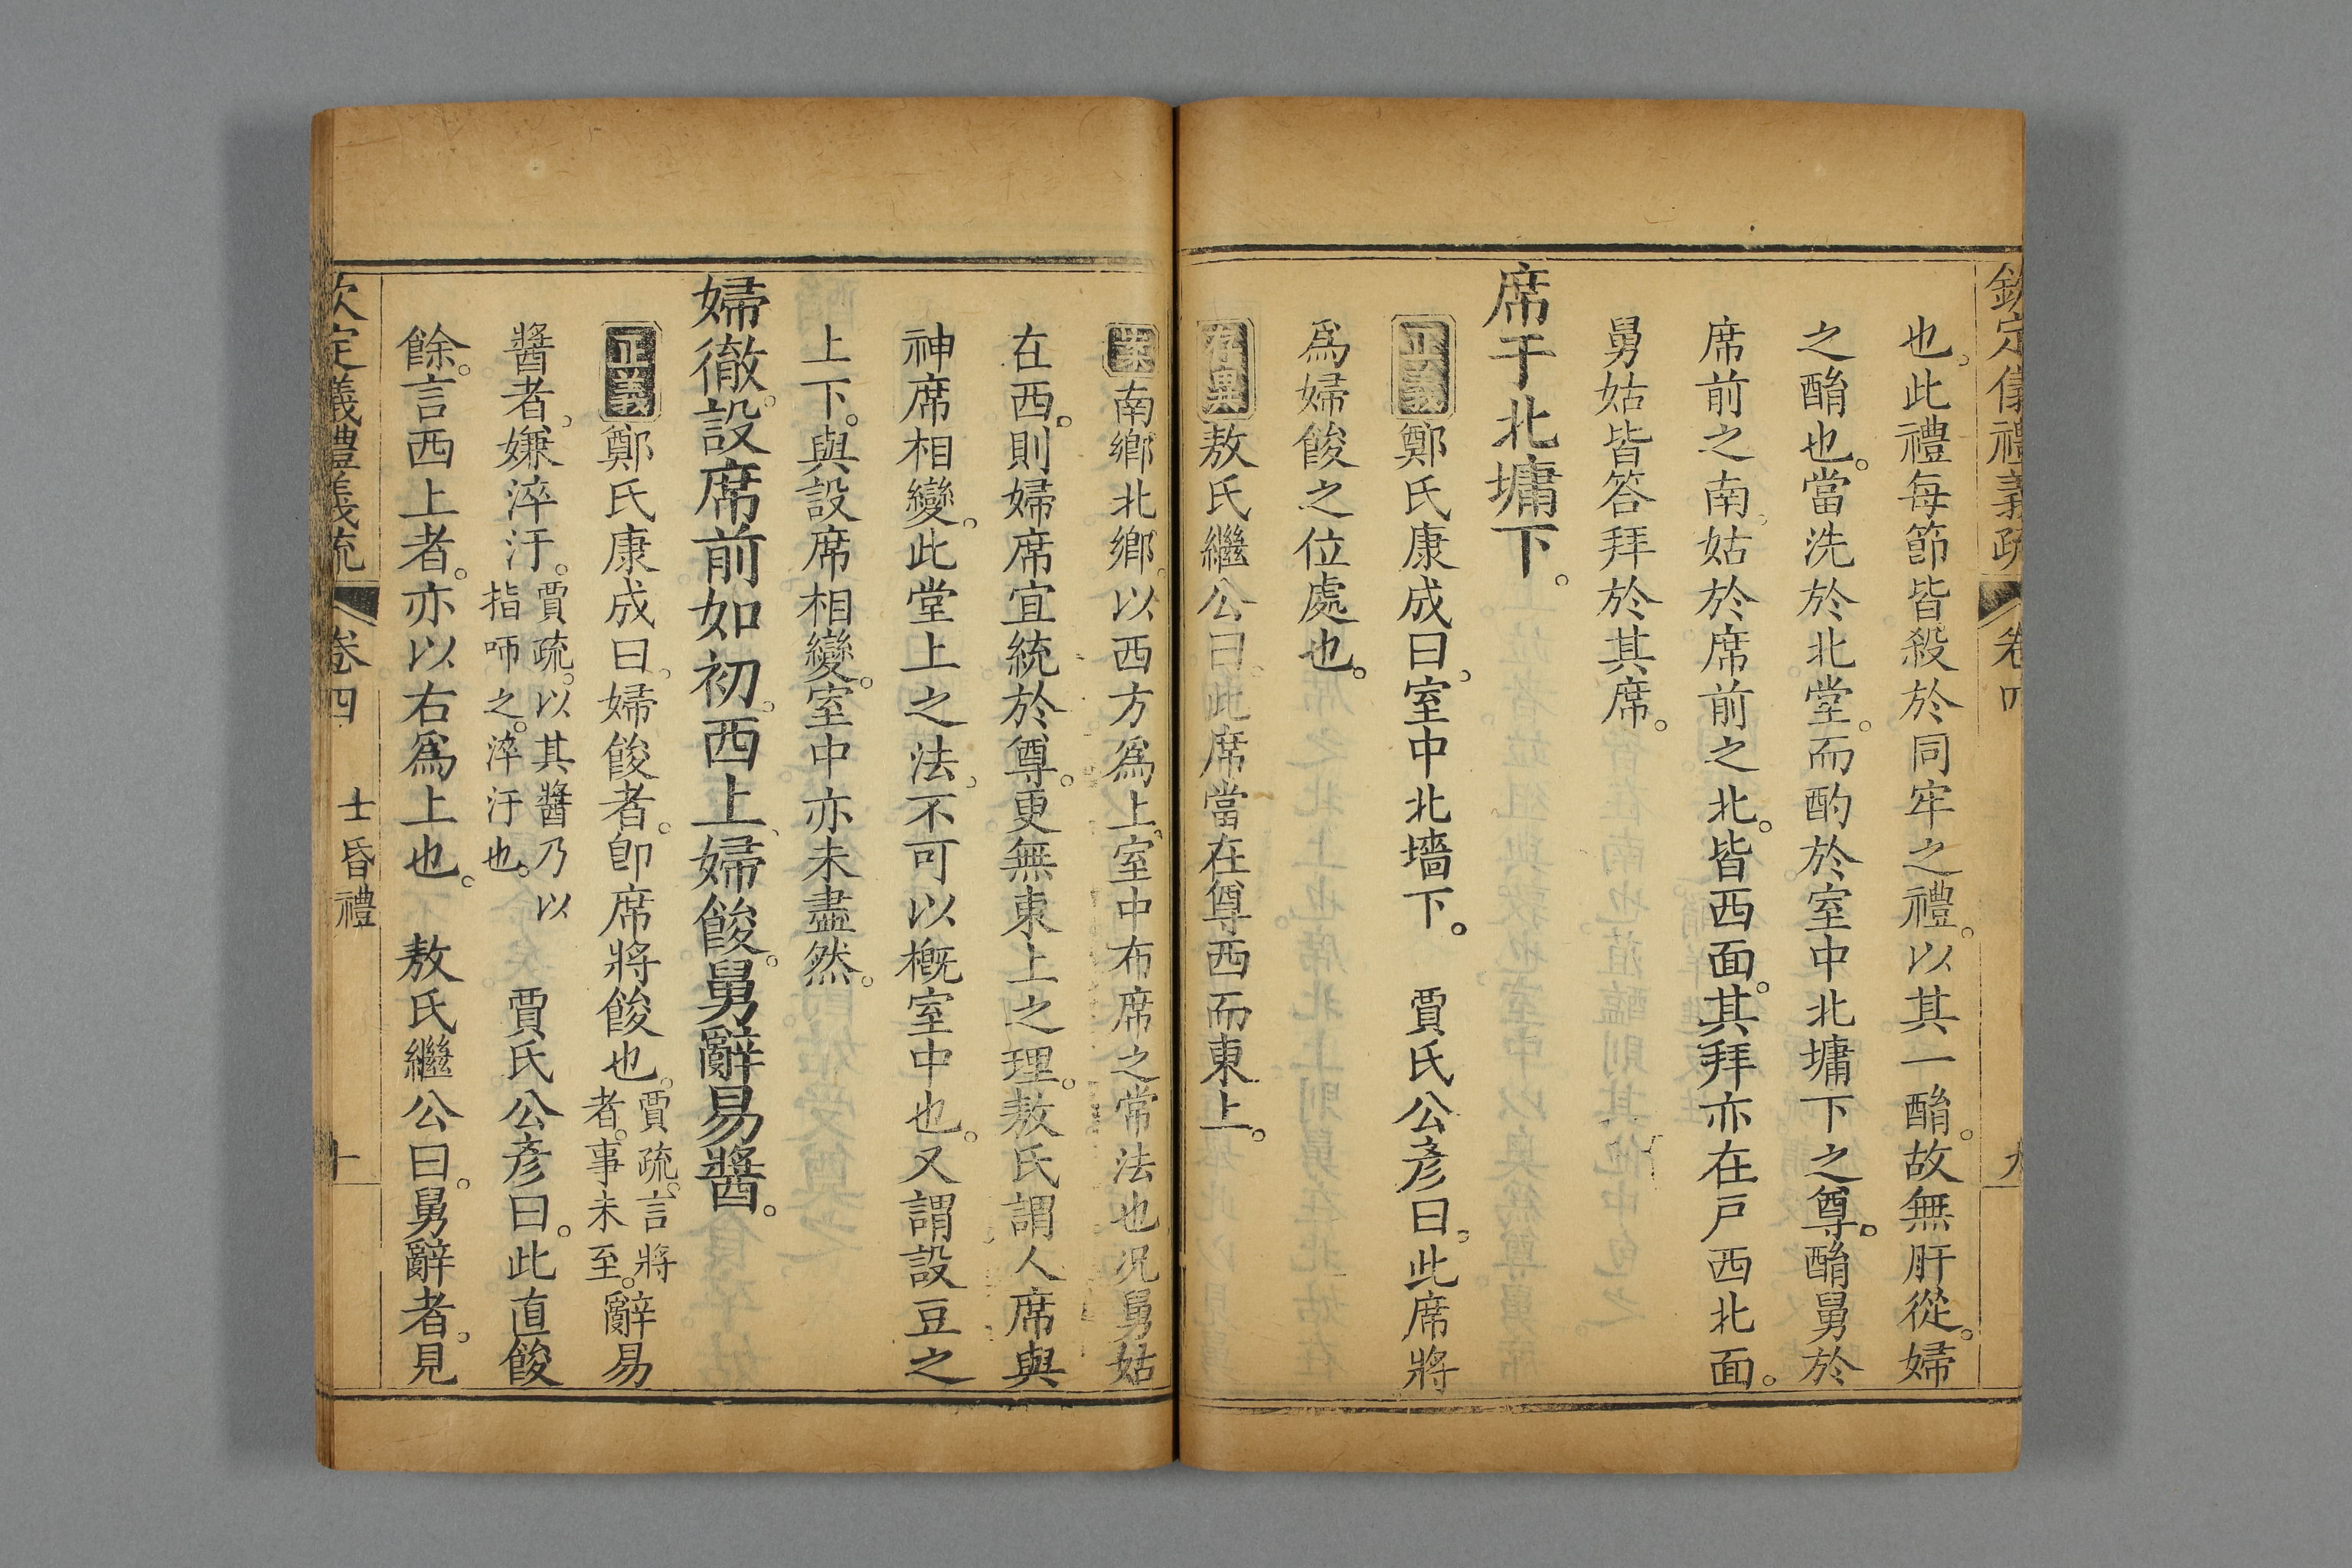 欽定儀禮義疏 卷四 九
也。此禮每節皆殺於同牢之禮。以其一酳。故無肝從。婦
之酳也。當洗於北堂。而酌於室中北墉下之尊。酳舅於
席前之南。姑於席前之北。皆西面。其拜亦在戶西北面。
舅姑皆答拜於其席。
席于北墉下。
正義鄭氏康成曰。室中北墻下。 賈氏公彥曰。此席將
爲婦餕之位處也。
存異敖氏繼公曰。此席當在尊西而東上。
案南鄉北鄉。以西方爲上。室中布席之常法也。况舅姑
在西。則婦席宜統於尊。更無東上之理。敖氏謂人席與
神席相變。此堂上之法。不可以槪室中也。又謂設豆之
上下。與設席相變。室中亦未盡然。
婦徹。設席前如初。西上。婦餕。舅辭易醬。
正義鄭氏康成曰。婦餕者。卽席將餕也。賈疏。言將
者。事未至。辭易
醬者。嫌淬汙。賈疏。以其醬乃以
指咂之。淬汙也。 賈氏公彥曰。此直餕
餘。言西上者。亦以右爲上也。 敖氏繼公曰。舅辭者。見
欽定儀禮義疏 卷四 士昏禮 十